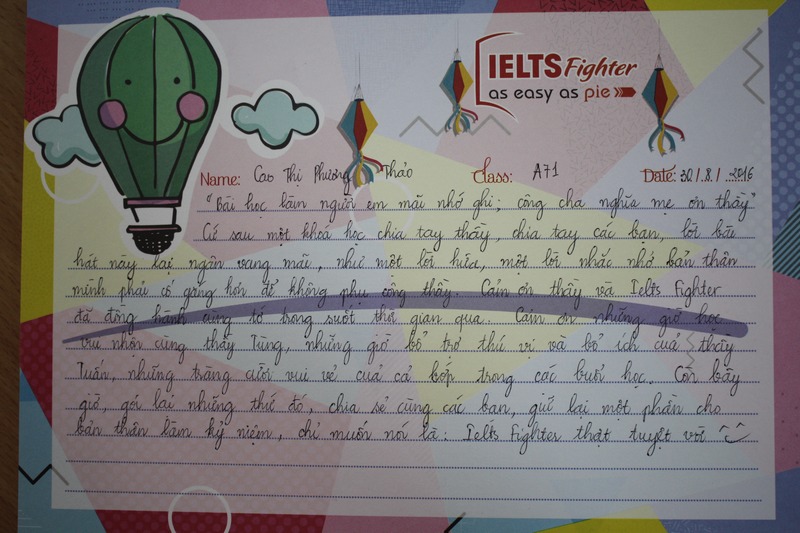 IELTS Fighter
as easy as pie
Name: Cao Thị Phương Thảo Class: A71 Date: 30/8/2016
"Bài học làm người em mãi nhớ ghi; công cha nghĩa mẹ ơn thầy"
Cứ sau một khoá học chia tay thầy, chia tay các bạn, lời bài
hát này lại ngân vang mãi, như một lời hứa, một lời nhắc nhở bản thân
mình phải cố gắng hơn để không phụ công thầy. Cảm ơn thầy và Ielts Fighter
đã đồng hành cùng tớ trong suốt thời gian qua. Cảm ơn những giờ học
vui nhộn cùng thầy Tùng, những giờ bổ trợ thú vị và bổ ích của thầy
Tuấn, những tràng cười vui vẻ của cả lớp trong các buổi học. Còn bây
giờ, gói lại những thứ đó, chia sẻ cùng các bạn, giữ lại một phần cho
bản thân làm kỷ niệm, chỉ muốn nói là: Ielts Fighter thật tuyệt vời ^^